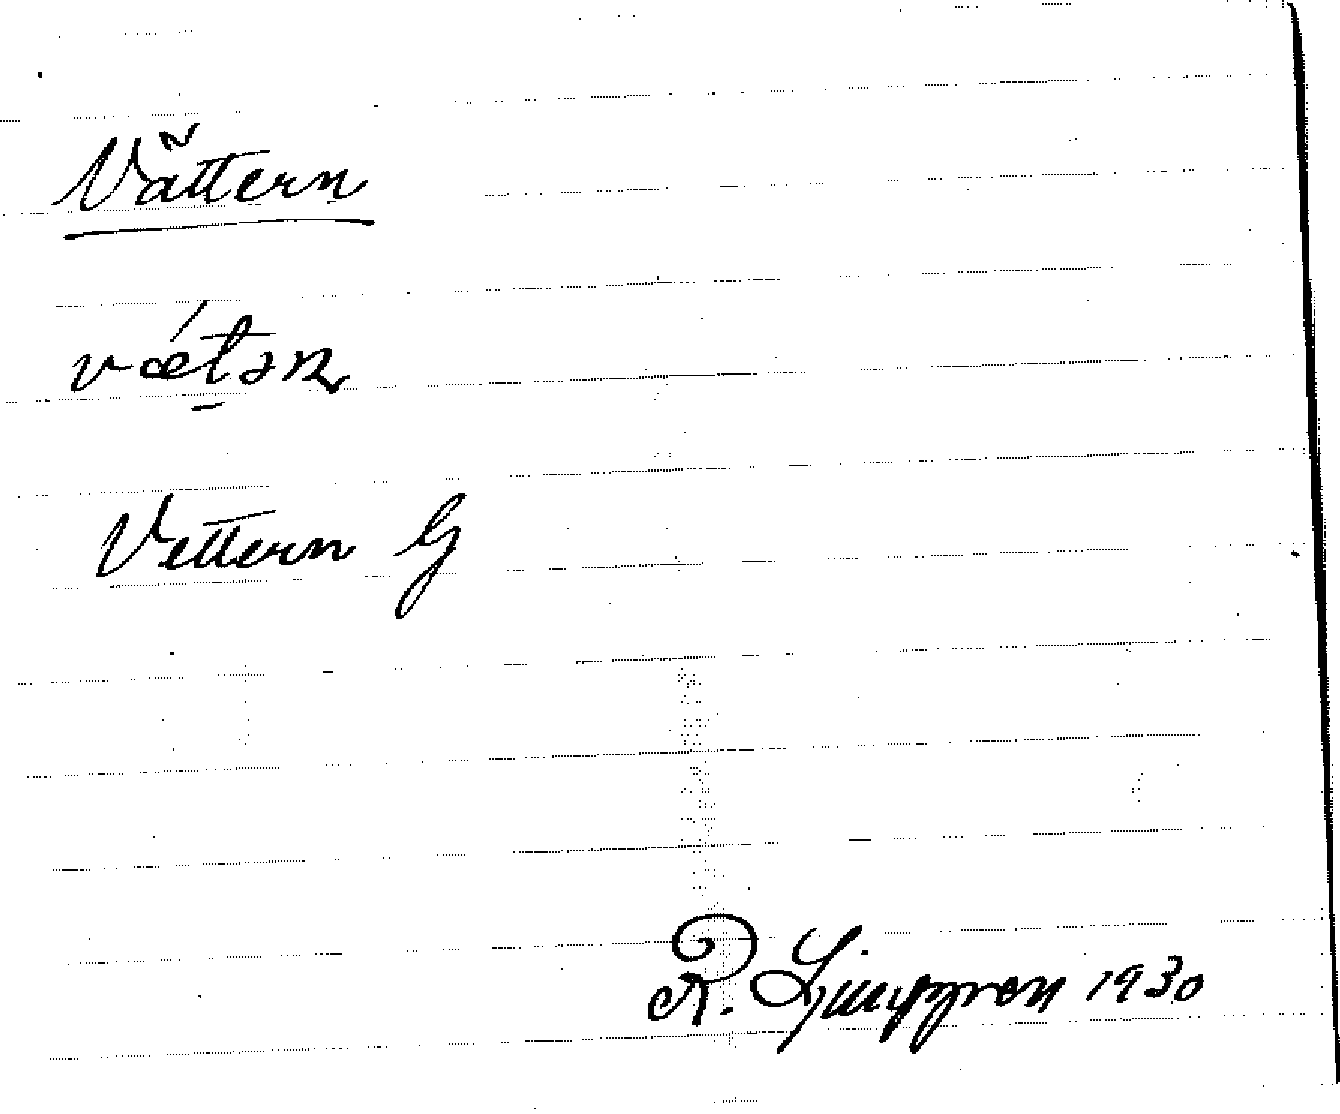 Vättern
vǽt̠ən
Vettern G
R. Ljunggren 1930